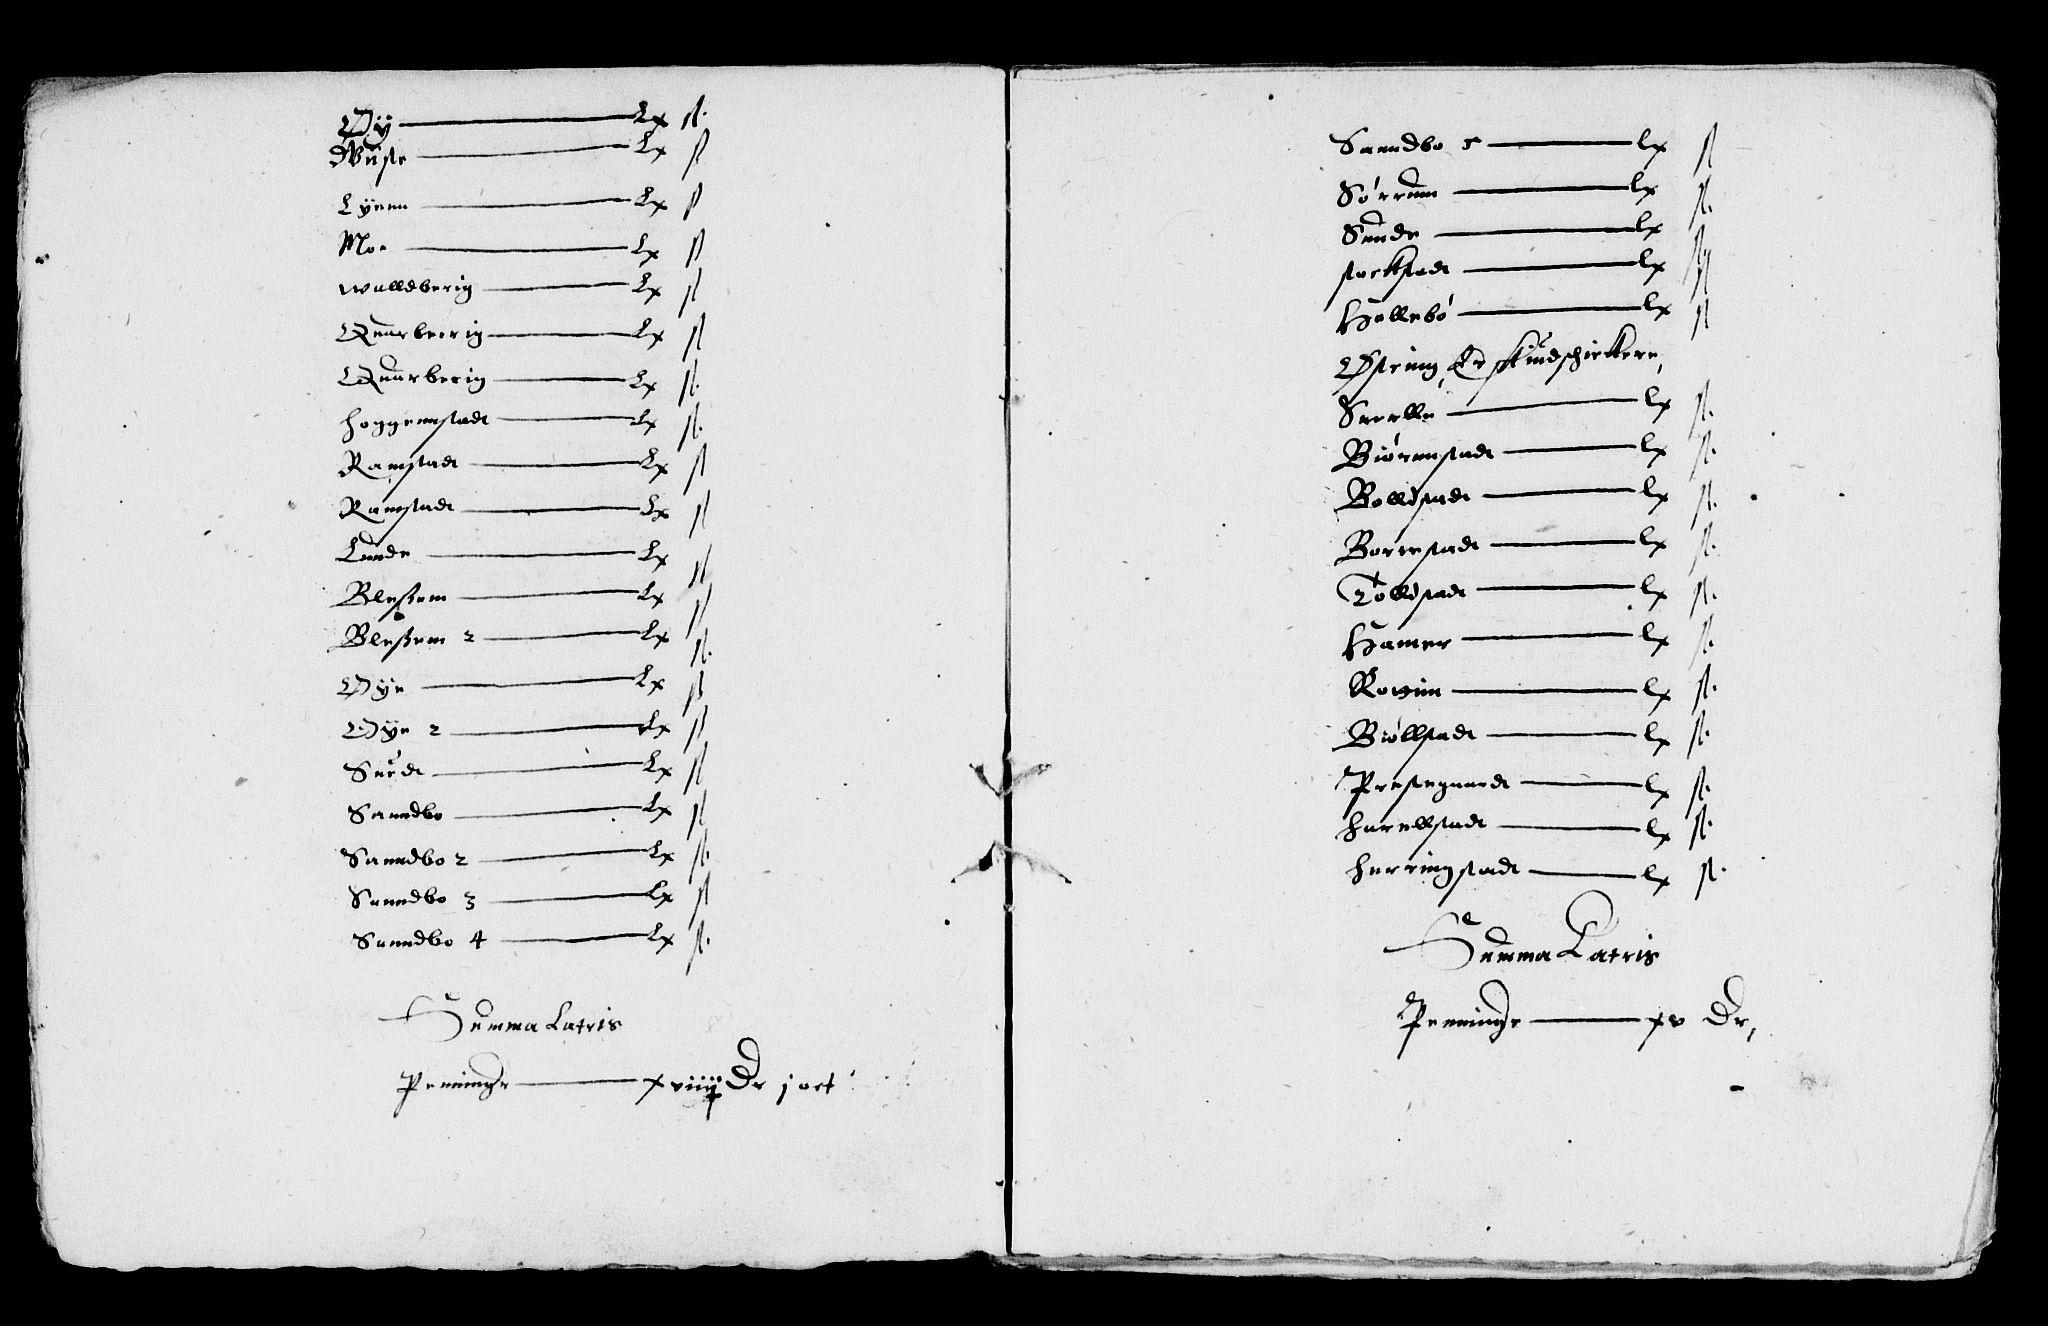 Øy — Lx ß.
Viiste — Lx ß
Lyenn — Lx ß
Moe — Lx ß
Walldberig — Lx ß
Quarberig — Lx ß
Quarberig — Lx ß.
Hoggennstadt — Lx ß.
Ramstadt — Lx ß
Ramstadt — Lx ß
Lunde — Lx ß
Bleßem — Lx ß
Bleßem 2 — Lx ß.
Øye — Lx ß
Øye 2 — Lx ß
Surdt — Lx ß
Sanndbo — Lx ß
Sanndbo 2 — Lx ß.
Sanndbo 3 — Lx ß
Sanndbo 4 — Lx ß.
Summa Lateris
Penninge — xviiij Dr j ort
Sanndbo 5 — lx ß
Sørrum — lx ß.
Sunde — lx ß
stockstadt — lx ß
Hollebø — lx ß
Snerlle — lx ß.
Biørnstadt — lx ß.
Bolldstadt — lx ß.
Borrestadt — lx ß.
Tolldstadt — lx ß.
Hamer — lx ß.
— lx ß.
Biøllstadt — lx ß.
Prestegaardt — lx ß.
Harellstadt — lx ß.
Herringstadt — lx ß.
Summa Lateris
Penninge — xv Dr,